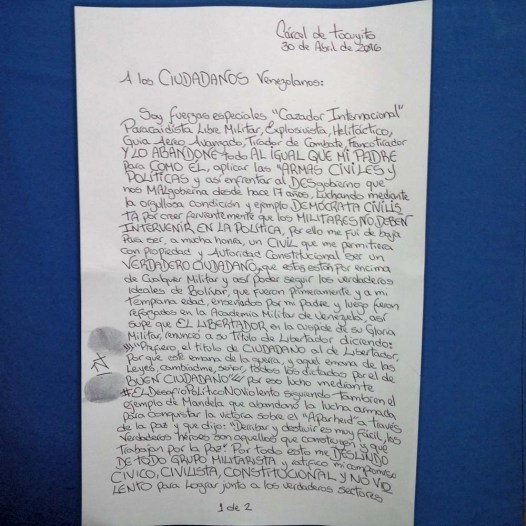 Cárcel de tocuyito
30 de Abril de 2016
A los CIUDADANOS Venezolanos:
Soy fuerzas especiales "Cazador Internacional"
Paracaidista Libre Militar, Explosivista, Helitáctico,
Guia Aereo Avanzado, Tirador de Combate, Francotirador
Y LO ABANDONE todo AL IGUAL QUE MI PADRE
para COMO EL, aplicar las "ARMAS CIVILES Y
POLÍTICAS y así enfrentar al DESgobierno que
nos MALgobierna desde hace 17 años, Luchando mediante
la orgullosa condición y ejemplo DEMÓCRATA CIVILIS
TA por creer fervientemente que los MILITARES NO DEBEN
INTERVENIR EN LA POLÍTICA, por ello me fui de baja
Para ser, a mucha honra, un CIVIL que me permitiera
con propiedad y Autoridad Constitucional ser un
VERDADERO CIUDADANO, que estos están por encima
de Cualquier Militar y así poder seguir los verdaderos
ideales de Bolívar, que fueron primeramente y a mi
temprana edad, enseñados por mi Padre y luego fueron
reforzados en la Academia Militar de Venezuela, así
supe que EL LIBERTADOR en la cuspide de su Gloria
Militar, renunció a su titulo de Libertador diciendo:
"Prefiero el titulo de CIUDADANO al de Libertador,
Por que este emana de la guerra, y aquel emana de las
Leyes, cambiadme, señor, todos los dictados por el de
BUEN CIUDADANO" por eso lucho mediante
#ELDesafioPolíticoNOViolento siguiendo tambien el
ejemplo de Mandela que abandonó la lucha armada
para conquistar la victoria sobre el "Aparheid" a través
de la paz y que dijo: "Derribar y destruir es muy fácil, los
Verdaderos héroes son aquellos que construyen y que
trabajan por la Paz" Por todo esto me DESLINDO
DE TODO GRUPO MILITARISTA y ratifico mi compromiso
CIVICO, CIVILISTA, CONSTITUCIONAL y NO VIO
LENTO para lograr junto a los verdaderos sectores
1 de 2